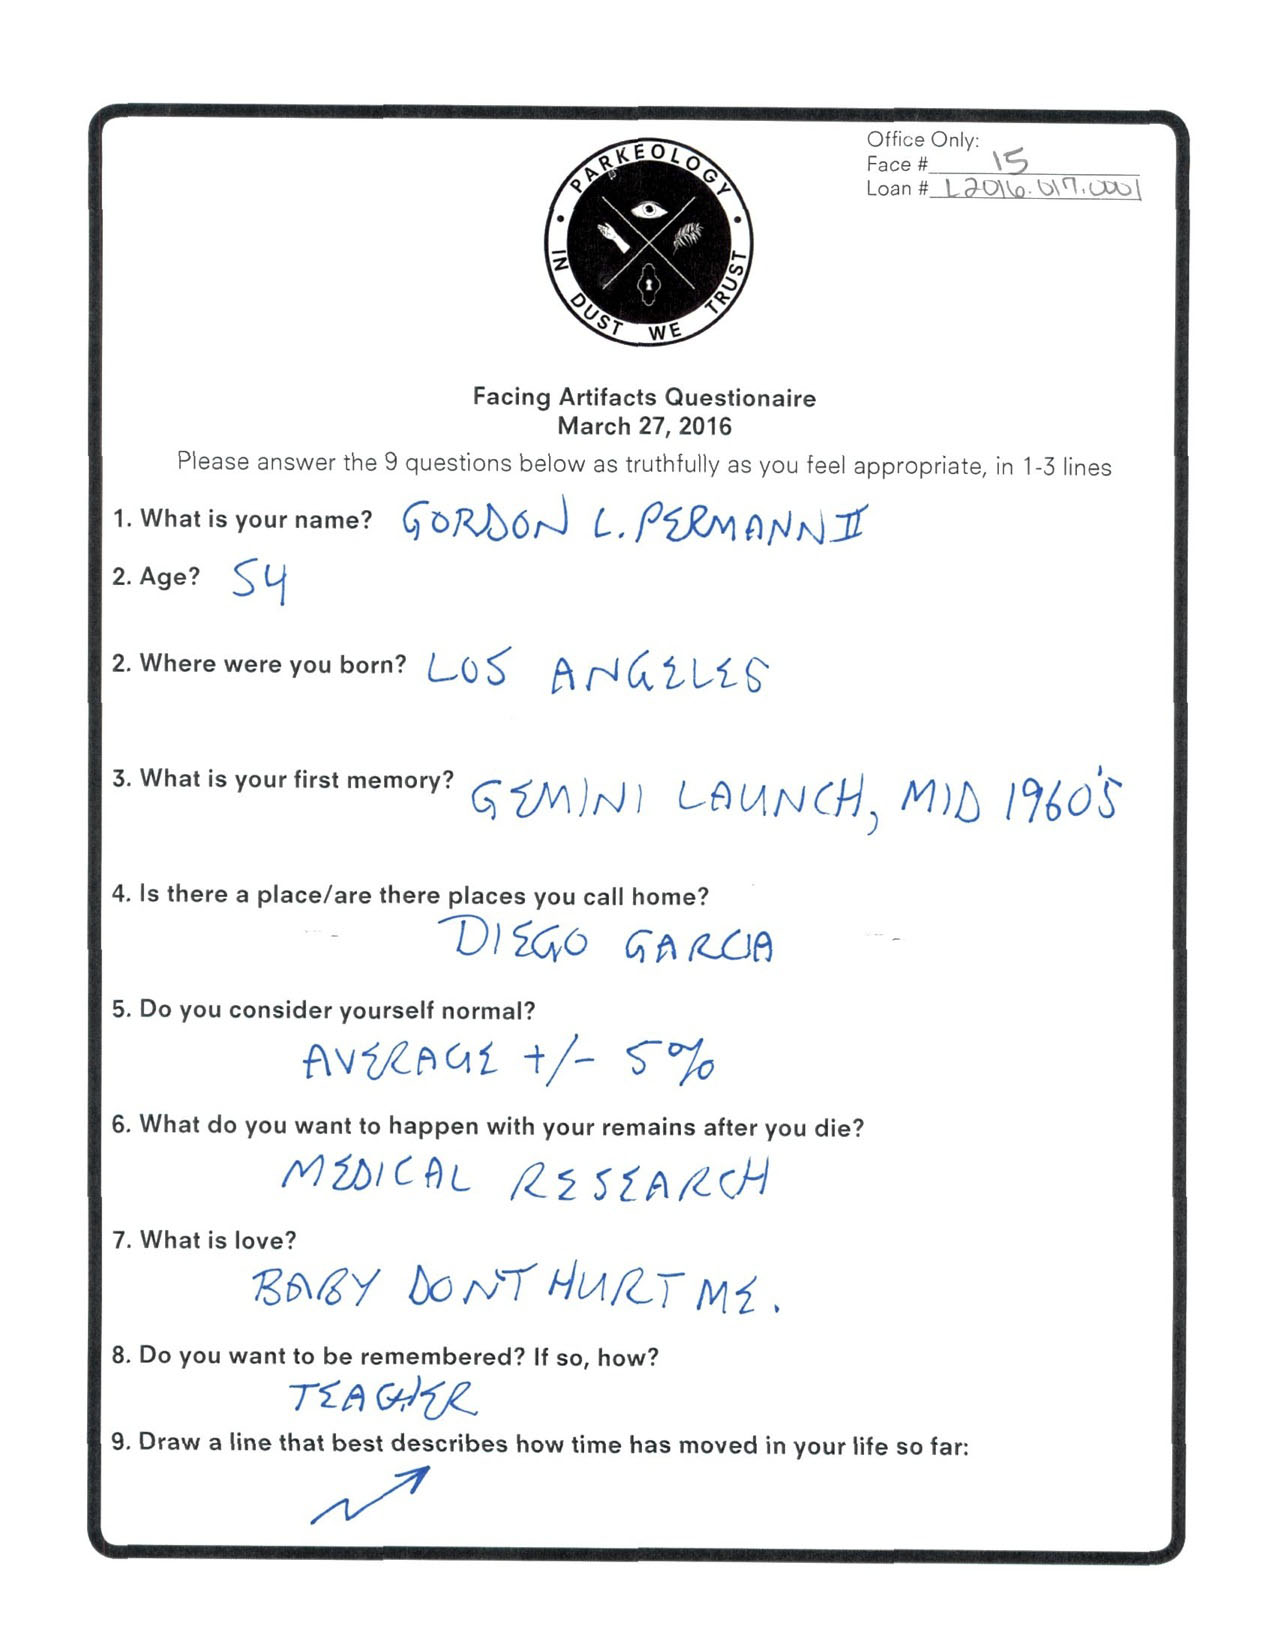 PARKEOLOGY
IN DUST WE TRUST
Office Only:
Face # 15
Loan # L2016.017.0001
Facing Artifacts Questionaire
March 27, 2016
Please answer the 9 questions below as truthfully as you feel appropriate, in 1-3 lines
1. What is your name? GORDON L. PERMANN II
2. Age? 54
2. Where were you born? LOS ANGELES
3. What is your first memory? GEMINI LAUNCH, MID 1960'S
4. Is there a place/are there places you call home?
DIEGO GARCIA
5. Do you consider yourself normal?
AVERAGE +/- 5%
6. What do you want to happen with your remains after you die?
MEDICAL RESEARCH
7. What is love?
BABY DONT HURT ME.
8. Do you want to be remembered? If so, how?
TEACHER
9. Draw a line that best describes how time has moved in your life so far: